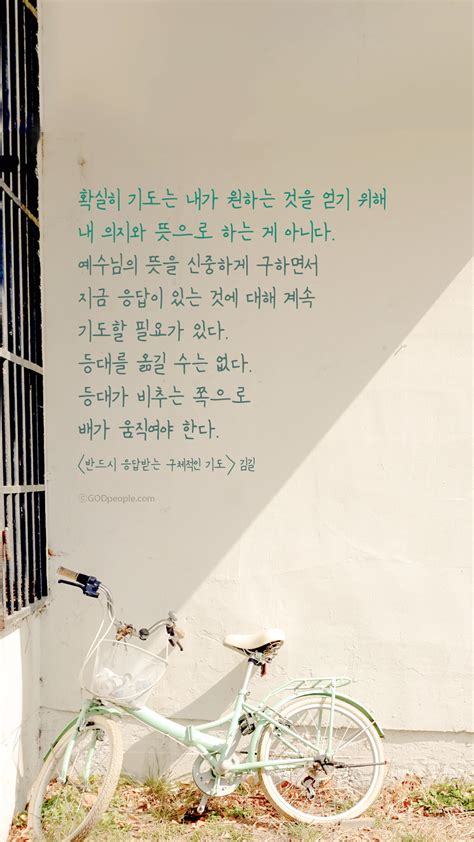 확실히 기도는 내가 원하는 것을 얻기 위해
내 의지와 뜻으로 하는 게 아니다.
예수님의 뜻을 신중하게 구하면서
지금 응답이 있는 것에 대해 계속
기도할 필요가 있다.
등대를 옮길 수는 없다.
등대가 비추는 쪽으로
배가 움직여야 한다.
<반드시 응답받는 구체적인 기도> 김길
ⓒGODpeople.com